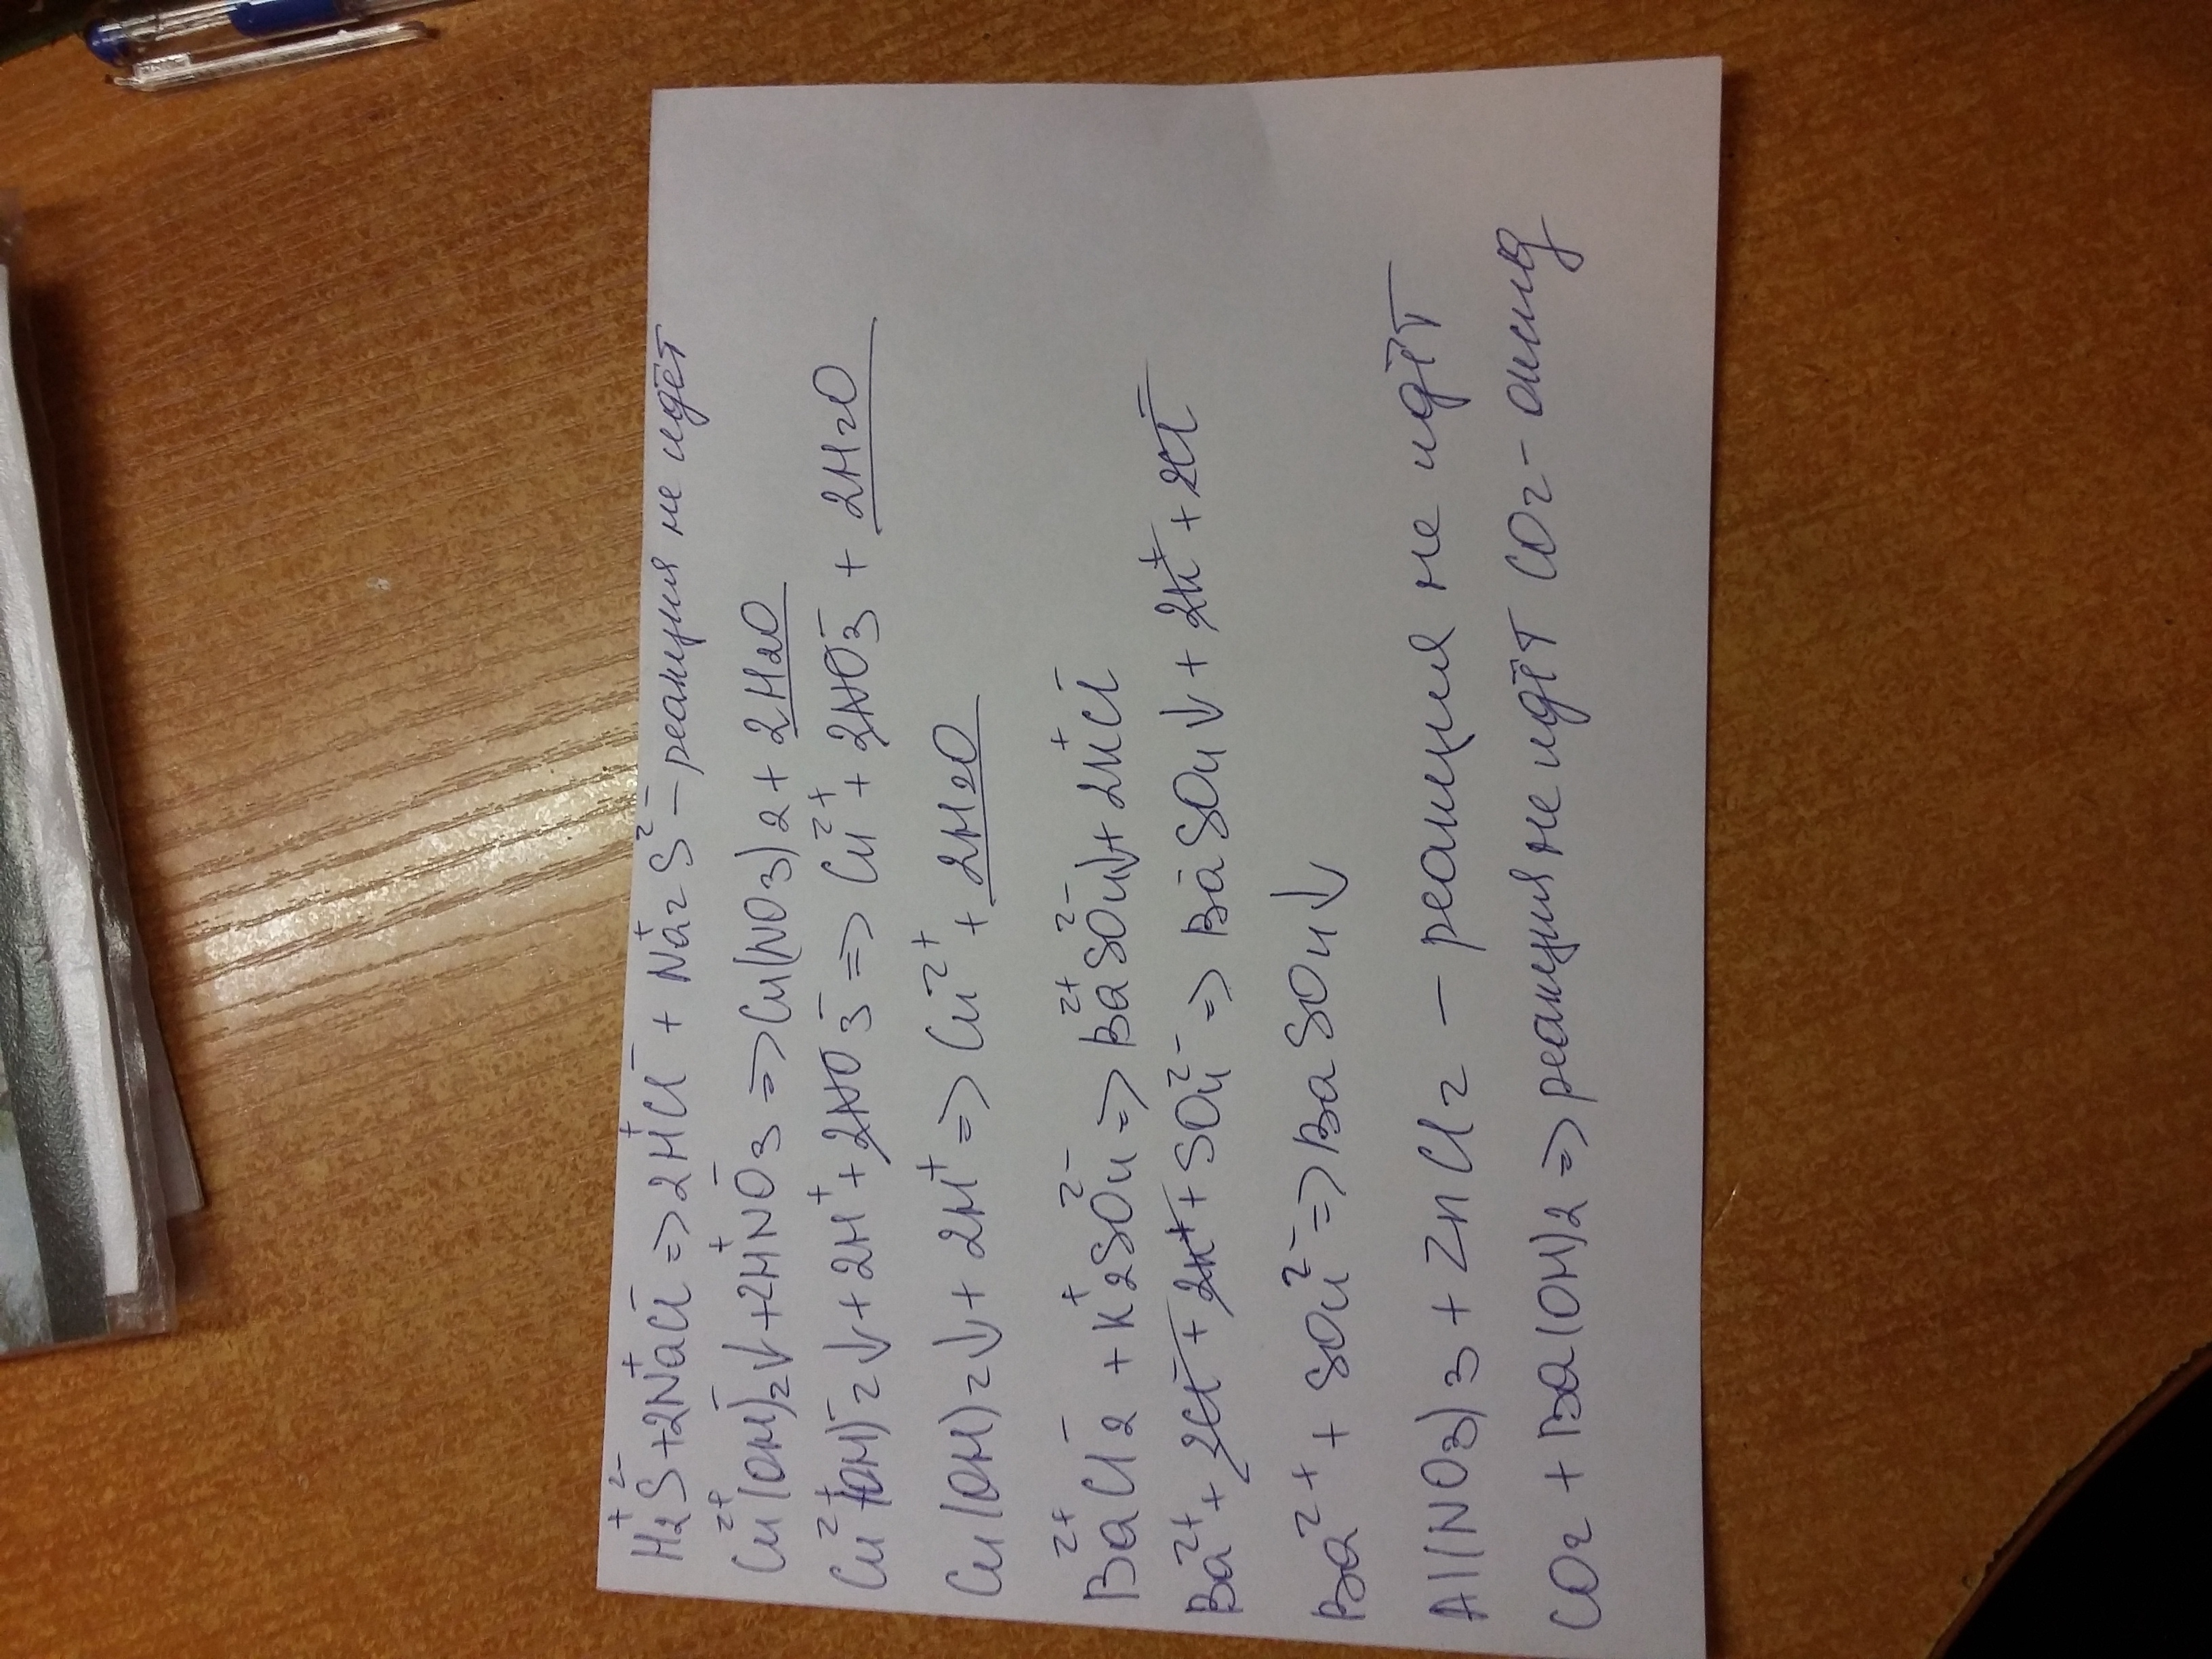 H₂⁺S²⁻ + 2Na⁺Cl⁻ => 2H⁺Cl⁻ + Na₂⁺S²⁻ – реакция не идёт
Cu²⁺(OH)₂⁻↓ + 2H⁺NO₃⁻ => Cu(NO₃)₂ + 2H₂O
Cu²⁺(OH)⁻₂↓ + 2H⁺ + 2NO₃⁻ => Cu²⁺ + 2NO₃⁻ + 2H₂O
Cu(OH)₂↓ + 2H⁺ => Cu²⁺ + 2H₂O
Ba²⁺Cl⁻₂ + K⁺₂SO₄²⁻ => Ba²⁺SO₄²⁻↓ + 2K⁺Cl⁻
Ba²⁺ + 2Cl⁻ + 2K⁺ + SO₄²⁻ => BaSO₄↓ + 2K⁺ + 2Cl⁻
Ba²⁺ + SO₄²⁻ => BaSO₄↓
Al(NO₃)₃ + ZnCl₂ – реакция не идёт
CO₂ + Ba(OH)₂ => реакция не идёт CO₂ - оксид